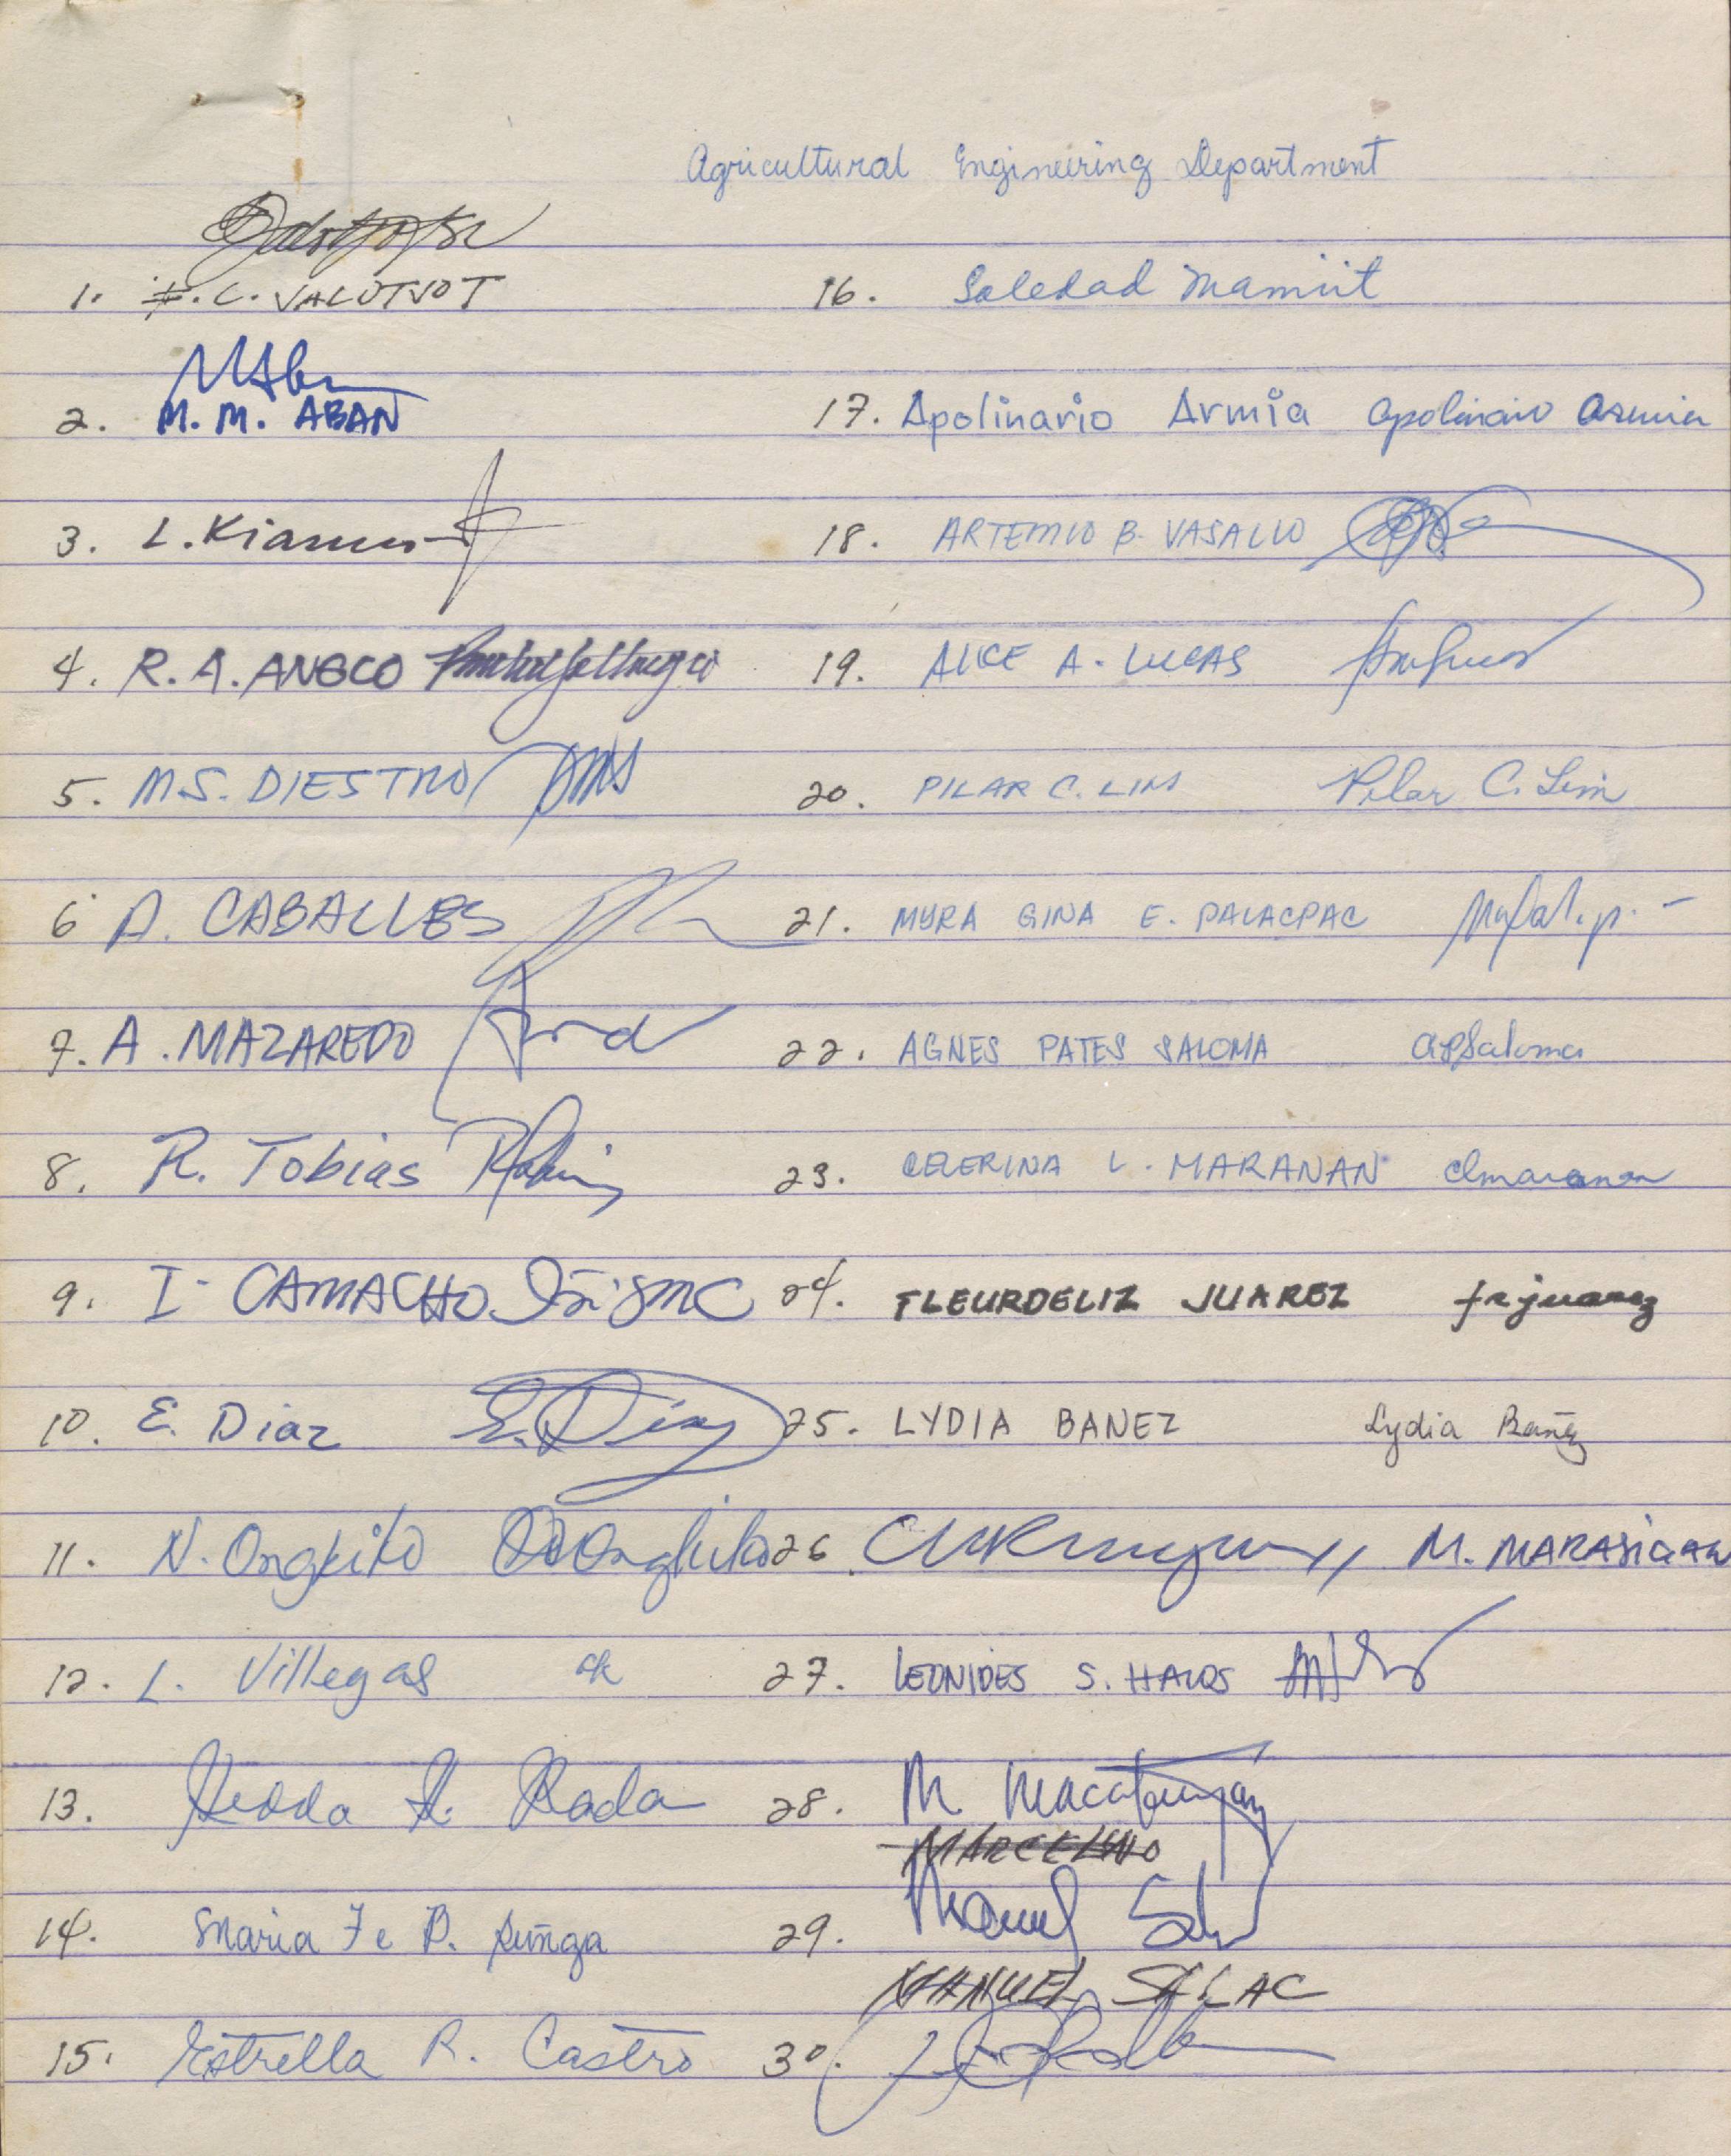 Agricultural Engineering Department
1.
2. M. M. ABAN
3. L.
4. R. A. ANGCO
5. M S. DIESTRO
6 A. CABALLES
7. A. MAZAREDO
8. R. Tobias
9. I. CAMACHO
10. E. Diaz E. Diaz
11. N. Ongkiko
12. L. Villegas
13. Hedda R. Rada
14. Maria Fe B. Zuñga
15. Estrella R. Castro
16. Soledad Mamiit
17. Apolinario Armia Apolinario Armia
18. ARTEMIO B. VASALLO
19. ALICE A. LUCAS
20. PILAR C. LIM Pilar C. Lim
21. MYRA GINA E. PALACPAC
22. AGNES PATES SALOMA apsaloma
23. CELERINA L. MARANAN clmaranan
24. FLEURDELIZ JUAREZ frjuarez
25. LYDIA BANEZ Lydia Bañez
26. M. MARASIGAN
27. LEONIDES S. HALOS
28. M. Macatangay
MARCELINO
29. Manuel
MANUEL SILAC
30.